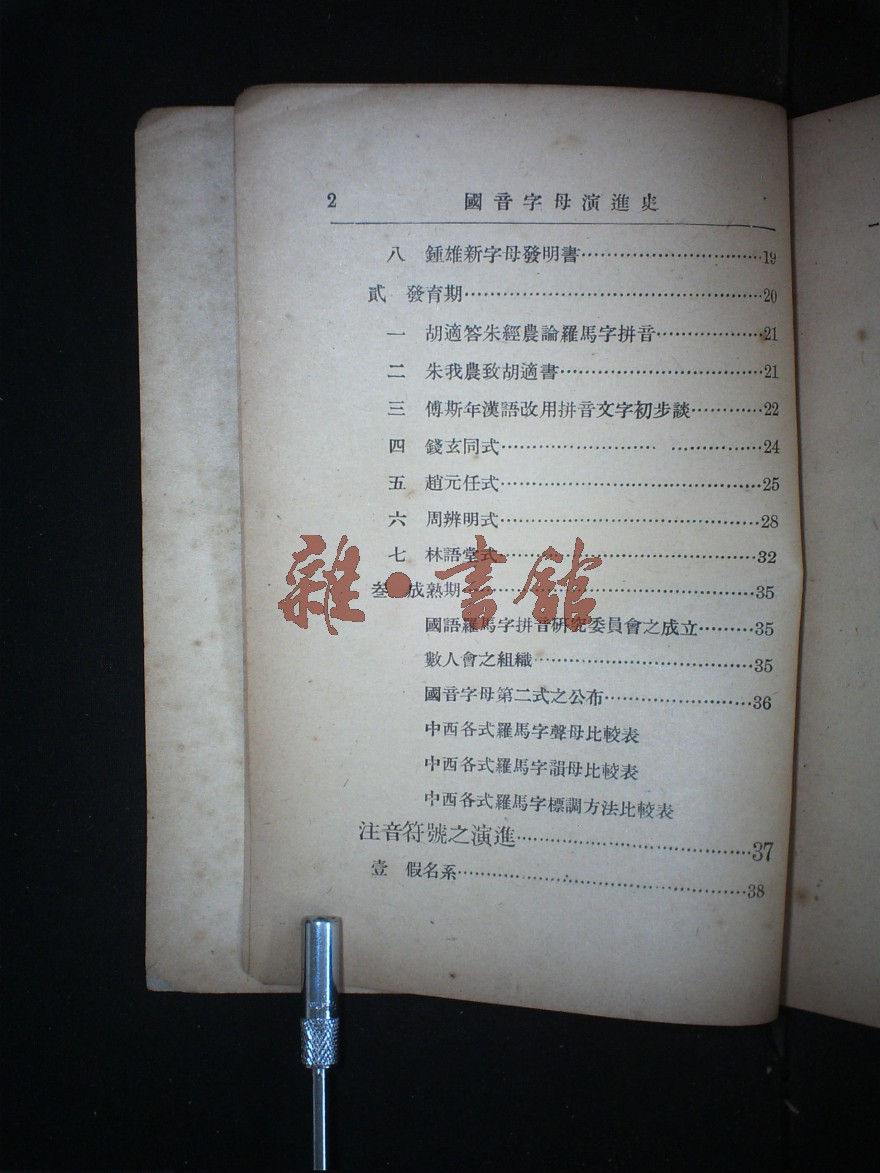 2 國音字母演進史
八 鍾雄新字母發明書……………………………19
貳 發育期……………………………………………20
一 胡適答朱經農論羅馬字拼音………………21
二 朱我農致胡適書………………………………21
三 傅斯年漢語改用拼音文字初步談…………22
四 錢玄同式………………………… ……………24
五 趙元任式…………………………………………25
六 周辨明式…………………………………………28
七 林語堂式…………………………………………32
叁 成熟期……………………………………………35
國語羅馬字拼音研究委員會之成立………35
數人會之組織……………………………………35
國音字母第二式之公布………………………36
中西各式羅馬字聲母比較表
中西各式羅馬字韻母比較表
中西各式羅馬字標調方法比較表
注音符號之演進……………………………………37
壹 假名系……………………………………………38
雜·書館